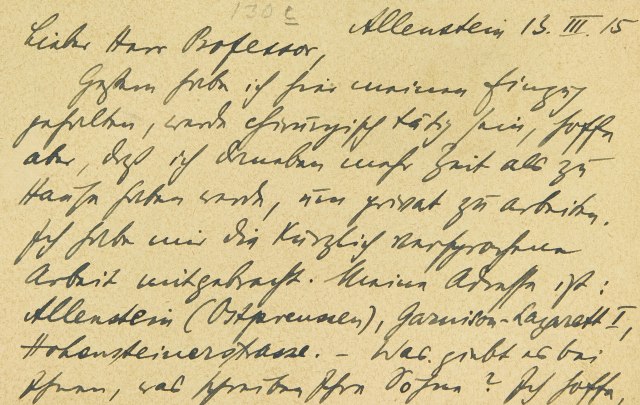 130 c
Allenstein 13. III. 15
Lieber Herr Professor,
Gestern habe ich hier meinen Einzug
gehalten, werde chirurgisch tätig sein, hoffe
aber, daß ich daneben mehr Zeit als zu
Hause haben werde, um privat zu arbeiten.
Ich habe mir die kürzlich versprochene
Arbeit mitgebracht. Meine Adresse ist:
Allenstein (Ostpreussen), Garnison-Lazarett I,
Hohensteinerstrasse. – Was giebt es bei
Ihnen, was schreiben Ihre Söhne? Ich hoffe,